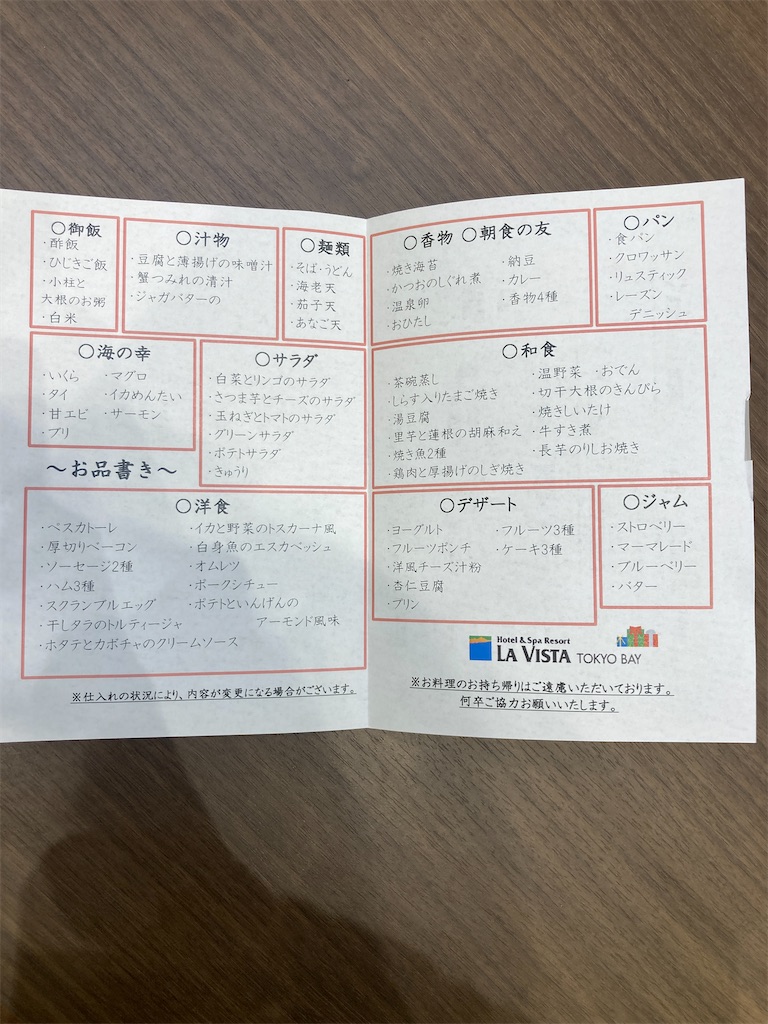 〇御飯
・酢飯
・ひじきご飯
・小柱と
大根のお粥
・白米
〇汁物
・豆腐と薄揚げの味噌汁
・蟹つみれの清汁
・ジャガバターの
〇麺類
・そば・うどん
・海老天
・茄子天
・あなご天
〇海の幸
・いくら ・マグロ
・タイ ・イカめんたい
・甘エビ ・サーモン
・ブリ
〇サラダ
・白菜とリンゴのサラダ
・さつま芋とチーズのサラダ
・玉ねぎとトマトのサラダ
・グリーンサラダ
・ポテトサラダ
・きゅうり
～お品書き～
〇洋食
・ペスカトーレ
・厚切りベーコン
・ソーセージ2種
・ハム3種
・スクランブルエッグ
・干しタラのトルティージャ
・ホタテとカボチャのクリームソース
・イカと野菜のトスカーナ風
・白身魚のエスカベッシュ
・オムレツ
・ポークシチュー
・ポテトといんげんの
アーモンド風味
※仕入れの状況により、内容が変更になる場合がございます。
〇香物 〇朝食の友
・焼き海苔
・かつおのしぐれ煮
・温泉卵
・おひたし
・納豆
・カレー
・香物4種
〇パン
・食パン
・クロワッサン
・リュスティック
・レーズン
デニッシュ
〇和食
・茶碗蒸し
・しらす入りたまご焼き
・湯豆腐
・里芋と蓮根の胡麻和え
・焼き魚2種
・鶏肉と厚揚げのしぎ焼き
・温野菜 ・おでん
・切干大根のきんぴら
・焼きしいたけ
・牛すき煮
・長芋のりしお焼き
〇デザート
・ヨーグルト
・フルーツポンチ
・洋風チーズ汁粉
・杏仁豆腐
・プリン
・フルーツ3種
・ケーキ3種
〇ジャム
・ストロベリー
・マーマレード
・ブルーベリー
・バター
Hotel & Spa Resort
LA VISTA TOKYO BAY
※お料理のお持ち帰りはご遠慮いただいております。
何卒ご協力お願いいたします。